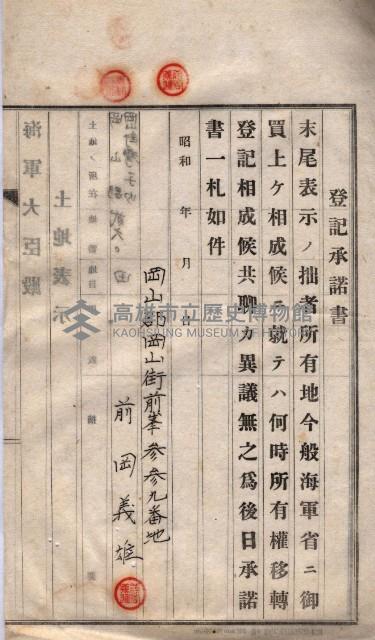 登記承諾書
末尾表示ノ拙者所有地今般海軍省ニ御
買上ケ相成候ニ就テハ何時所有權移轉
登記相成候共聊カ異議無之爲後日承諾
書一札如件
昭和 年 月 日
岡山郡岡山街前峯參參九番地
前岡義雄
土地ノ所在 地番 地目
土地表示
海軍大臣殿
高雄市立歷史博物館
KAOHSIUNG MUSEUM OF HISTORY